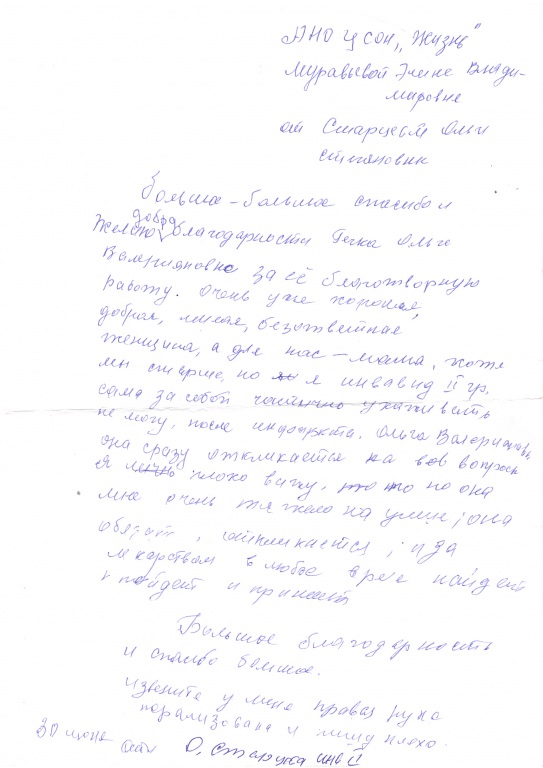 АНО ЦСОН „Жизнь"
Муравьевой Элене Влади-
мировне
от Старцевой Ольги
Большое-большое спасибо и
добра
Желаю благодарности Ольге
Валерияновне за её благотворную
работу. Очень уже хорошая,
добрая, милая, безответная
женщина, а для нас - мама, хоже
мы старше, но я инвалид II гр.
сама за собой частично ухаживать
не могу, после инфаркта. Ольга Валериановна,
она сразу откликается на все вопросы
Я плохо вижу, но она
мне очень тяжело на улицу она
откликается, и за
лекарствам в любое время найдет
и пойдет и принесет
Большое благодарность
и спасибо большое.
извените у меня правая рука
парализована и пишу плохо.
30 июня О. Старцева инв II